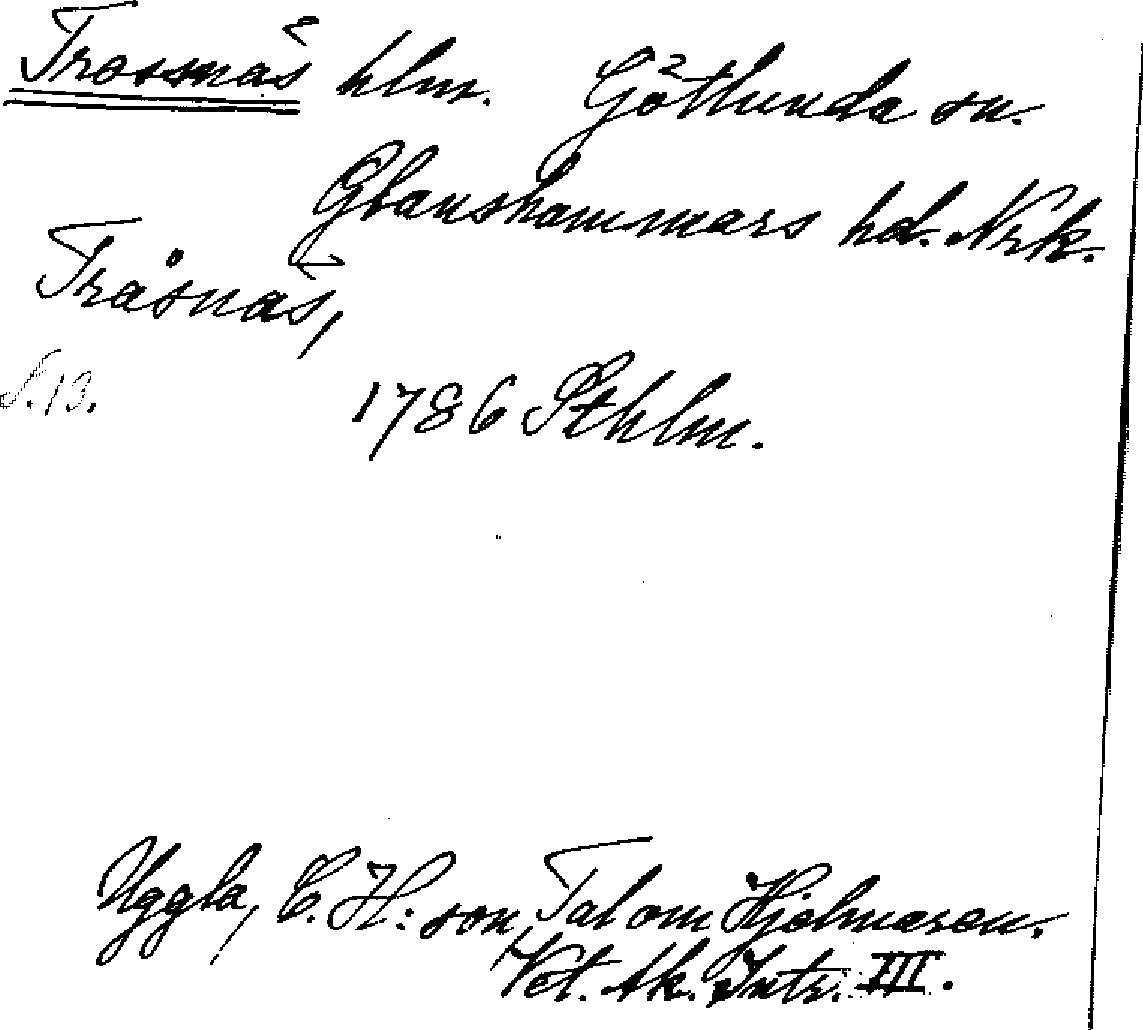 Trossnäs hlm. Götlunda sn.
Glanshammars hd. Nrk.
Tråsnäs,
S. 13.
1786 Sthlm.
Uggla, C. H:son, Tal om Hjelmaren.
Vet. Ak. Intr. III.